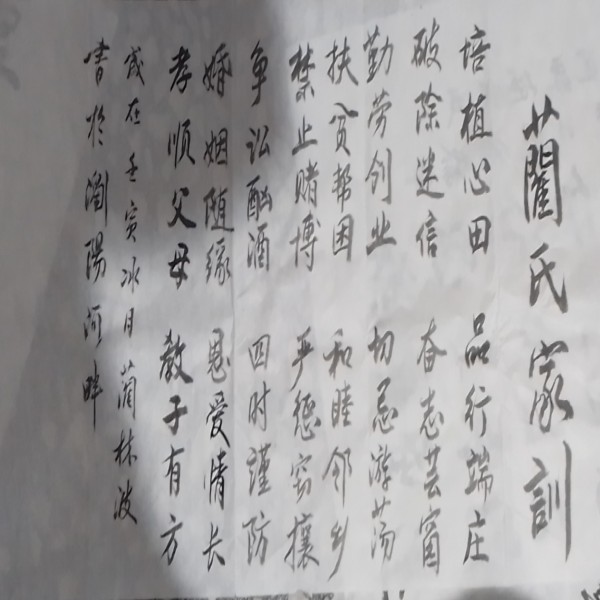 藺氏家訓
培植心田 品行端庄
破除迷信 奋志芸窗
勤劳创业 切忌游荡
扶贫帮困 和睦邻乡
禁止赌博 严惩窃攘
争讼酗酒 四时谨防
婚姻随缘 恩爱情长
孝顺父母 教子有方
歲在壬寅冰月藺林波
書於瀏陽河畔